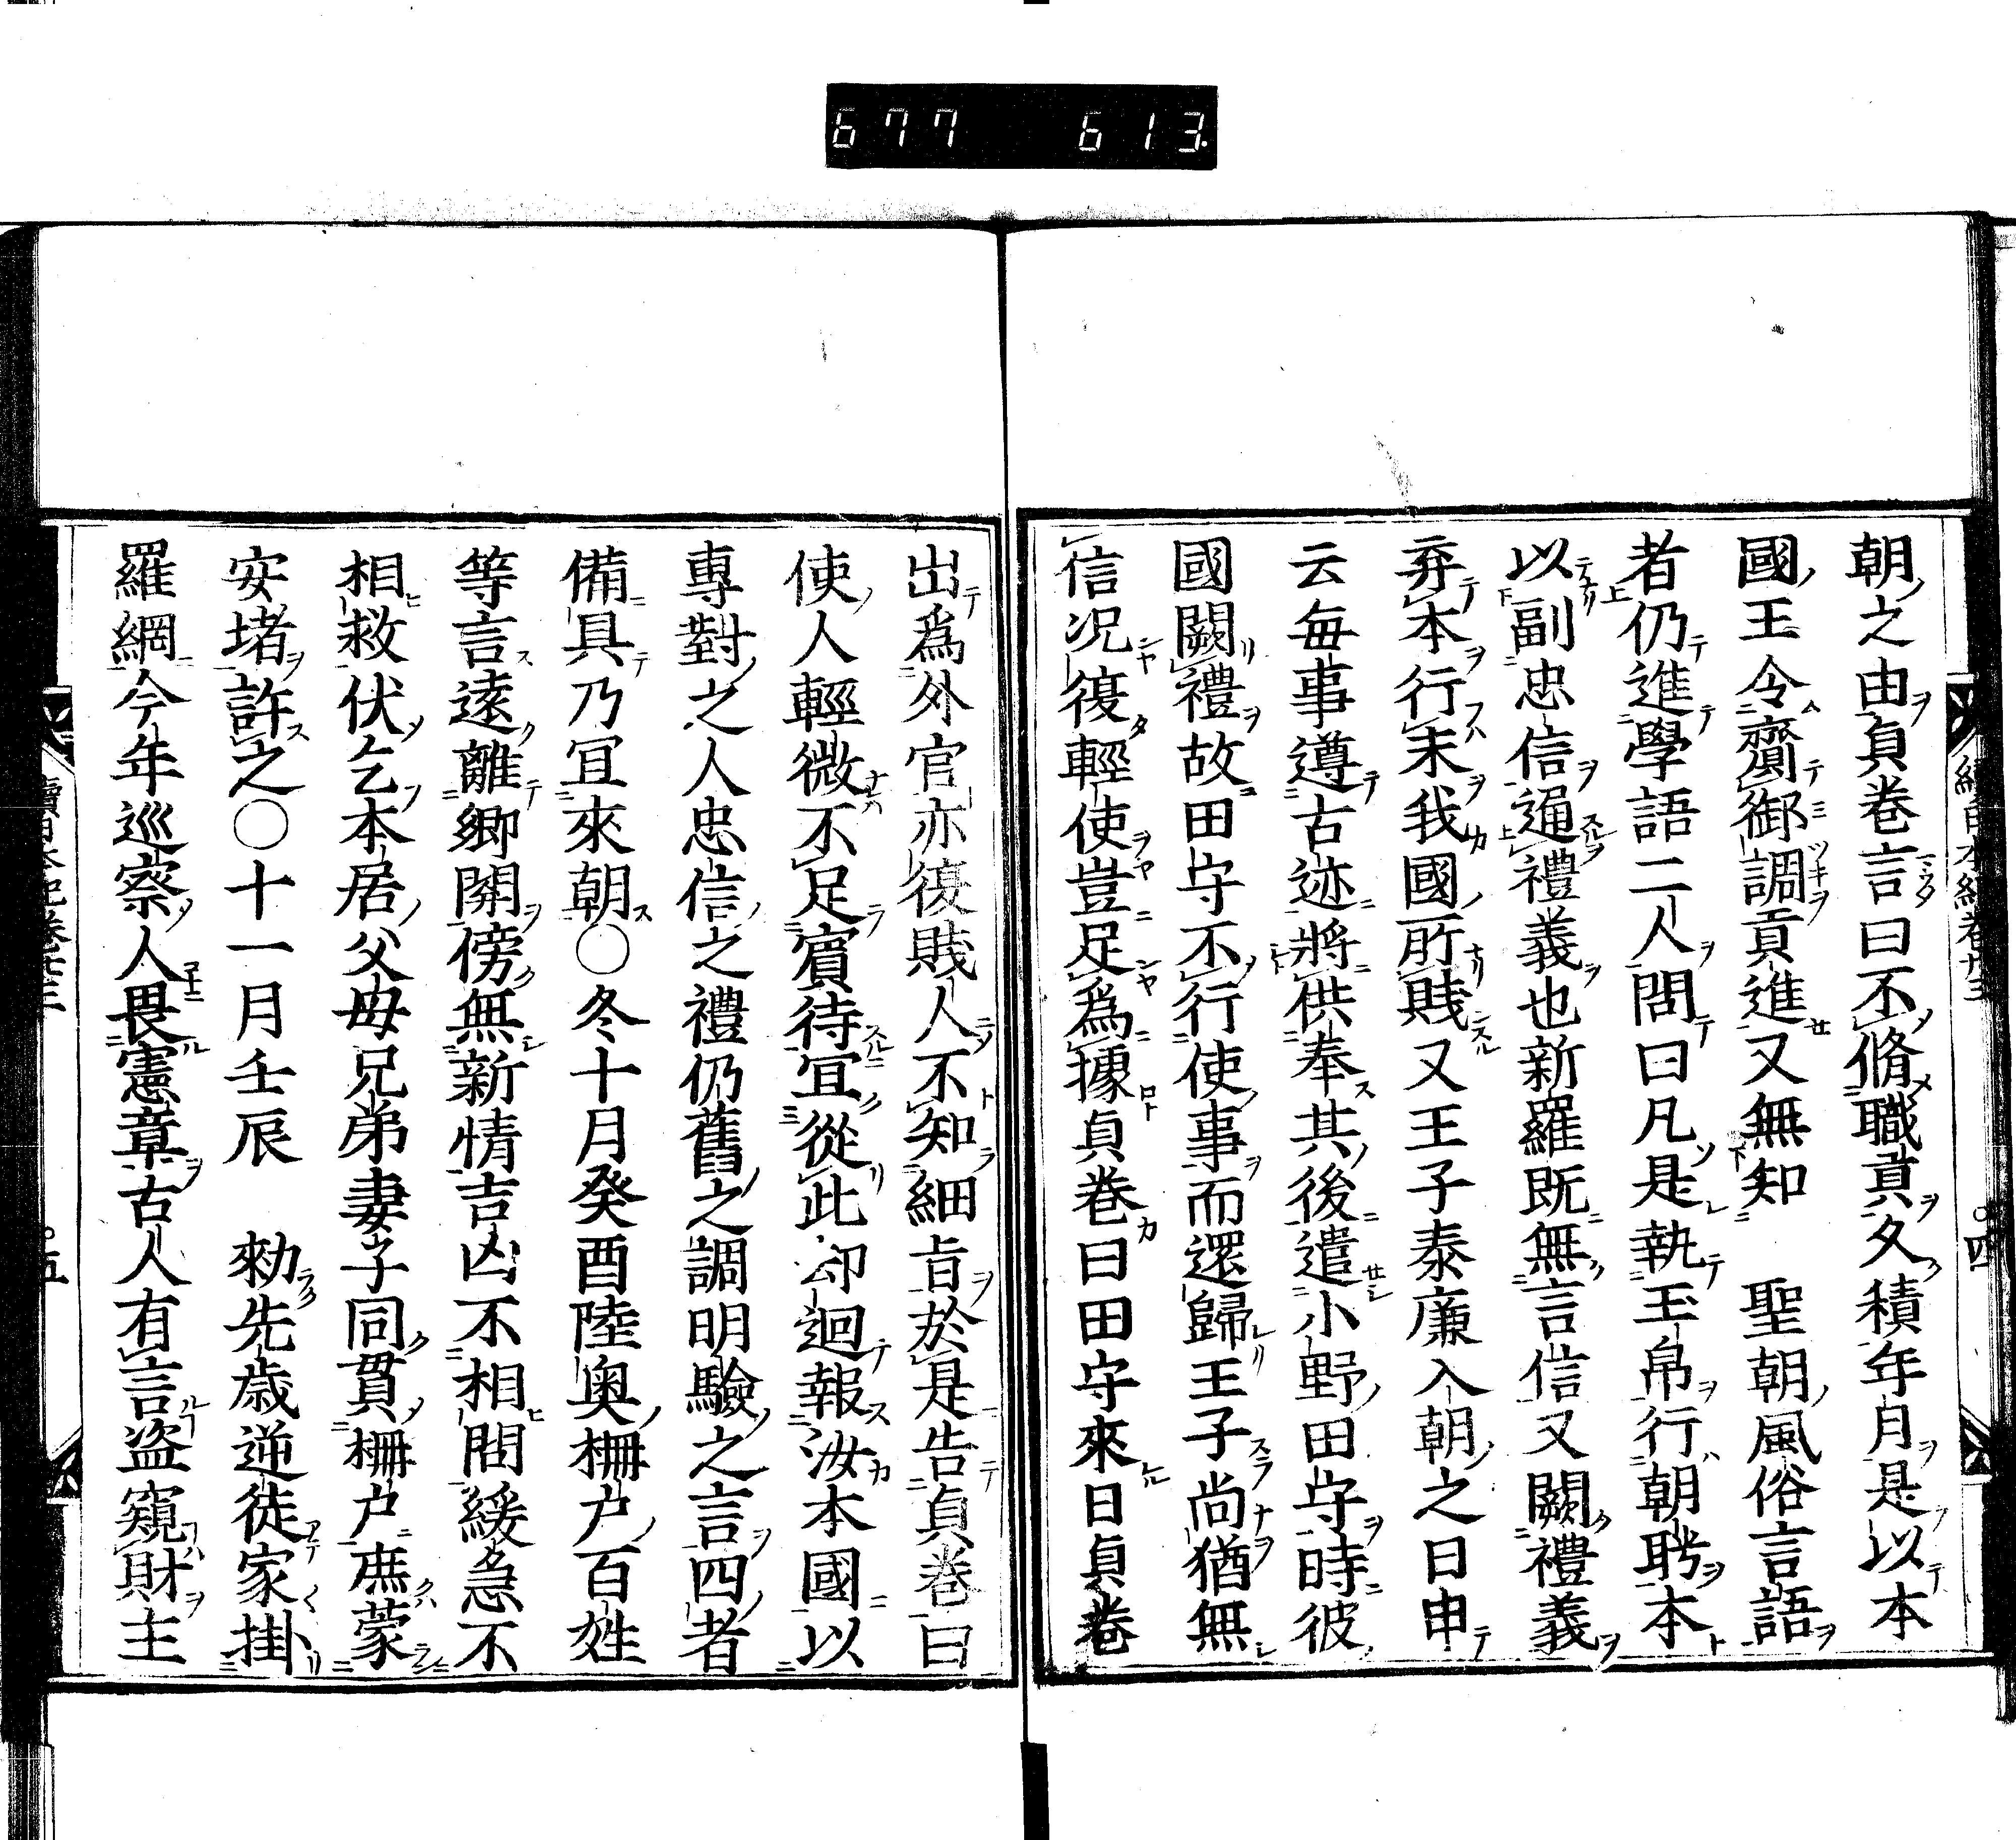 677 613
朝之由貞巻言曰不脩職貢久積年月是以本
國王令齎御調貢進又無知 聖朝風俗言語
者仍進學語二人問曰凡是執玉帛行朝聘本
以副忠信通禮義也新羅既無言信又闕禮義
弃本行末我國所賤又王子泰廉入朝之日申
云毎事遵古迹將供奉其後遣小野田守時彼
國闕禮故田守不行使事而還歸王子尚猶無
信况復輕使豈足爲據貞巻曰田守來日貞巻
出爲外官亦復賎人不知細旨於是告貞巻曰
使人輕微不足賓待宜從此却迴報汝本國以
專對之人忠信之禮仍舊之調明驗之言四者
備具乃宜來朝○冬十月癸酉陸奥柵户百姓
等言遠離郷関傍無新情吉凶不相問緩急不
相救伏乞本居父母兄弟妻子同貫柵户庶蒙
安堵許之○十一月壬辰 勑先歳逆徒家掛
羅網今年巡察人畏憲章古人有言盗窺財主